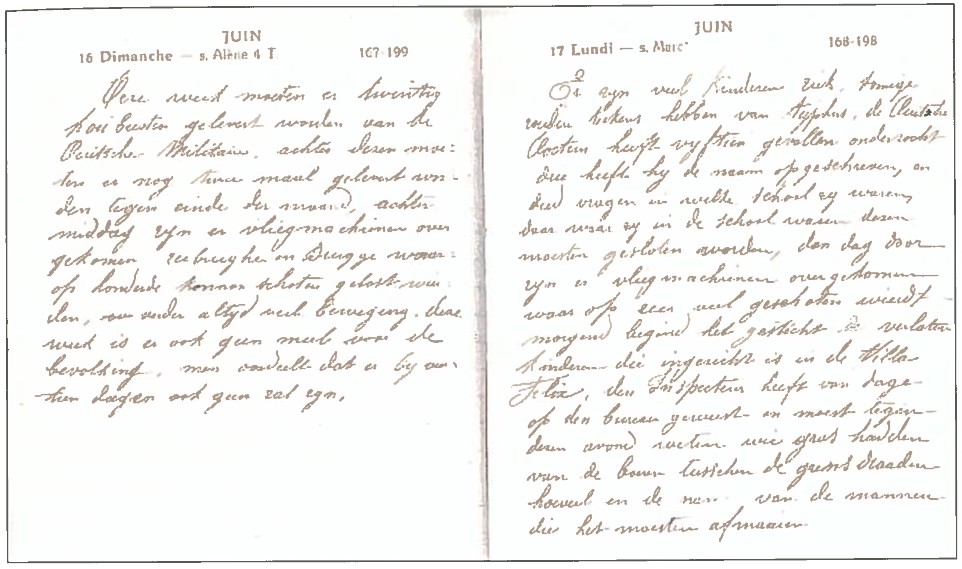 JUIN
16 Dimanche — s. Alène 4 T 167-199
Deze week moeten er twintig
hoibeesten gelevert worden van de
Duitsche Militaire. achter dezen moe-
ten er nog twee maal gelevert wor-
den tegen einde der maand, achter
middag zyn er vliegmachienen over
gekomen zeebrugghe en Brugge waar-
op honderde kannon schoten gelost wier
den, verder altyd veel beweging. deze
week is er ook geen meel voor de
bevolking, men oordeelt dat er by
tien dagen ook geen zal zyn.
JUIN
17 Lundi — s. Marc 168-198
Er zyn veel Kinderen ziek. somige
zouden tekens hebben van typhus, de Duitsche
Doctern heeft vyftien gevallen onderzocht
drie heeft hy de naam opgeschreven, en
deed vragen in welke school zy waren,
daar waar zy in de school waren dezen
moesten gesloten worden, dan dag door
zyn er vliegmachienen overgekomen
waar op zeer veel geschoten wierdt
morgend begind het gesticht verlaten
kinderen die ingericht is in de Villa
Felix, den Inspecteur heeft van dage
op den bureau geweest en moest tegen
dezen avond weten wie gras hadden
van de boven tusschen de draaden
hoeveel en de nam van de mannen
die het moesten afmaaien